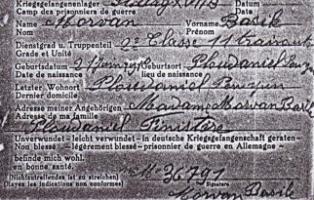 Kriegsgefangenenlager Stalag XVII B Datum
Camp des prisonniers de guerre Date
Name Morvan Vorname Basile
Nom Prénom
Dienstgrad u. Truppenteil 2e Classe 11
Grade et Unité
Geburtsdatum Geburtsort Ploudaniel
Date de naissance lieu de naissance
Letzter Wohnort Ploudaniel
Dernier domicile
Adresse meiner Angehörigen Madame Morvan Basile
Adresse de ma famille
Finistère
Unverwundet - leicht verwundet - in deutsche Kriegsgefangenschaft geraten -
Non blessé - légèrement blessé - prisonnier de guerre en Allemagne -
befinde mich wohl.
en bonne santé.
(Nichtzutreffendes ist zu streichen) 36791
(Rayez les indications non conformes) Signature
Morvan Basile